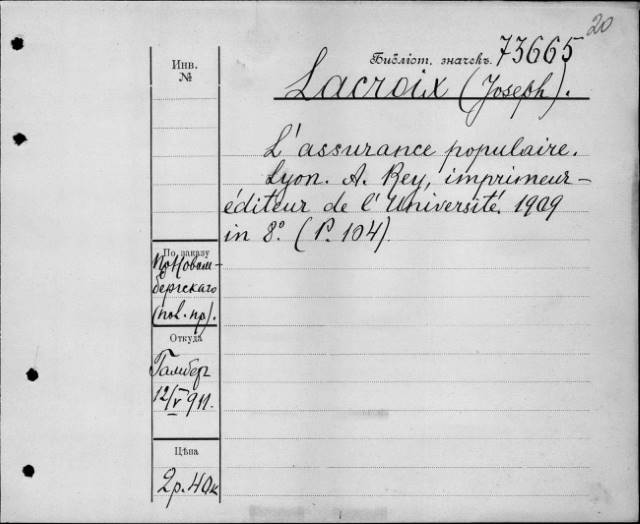 20
Инв.
№
Библіот. значекъ. 73665
Lacroix (Joseph).
L'assurance populaire.
Lyon. A. Rey, imprimeur-
éditeur de l'Université. 1909
in 8º (P. 104).
По заказу
бергскаго
(пол. пр.).
Откуда
12/V 911.
Цѣна
2р. 40к